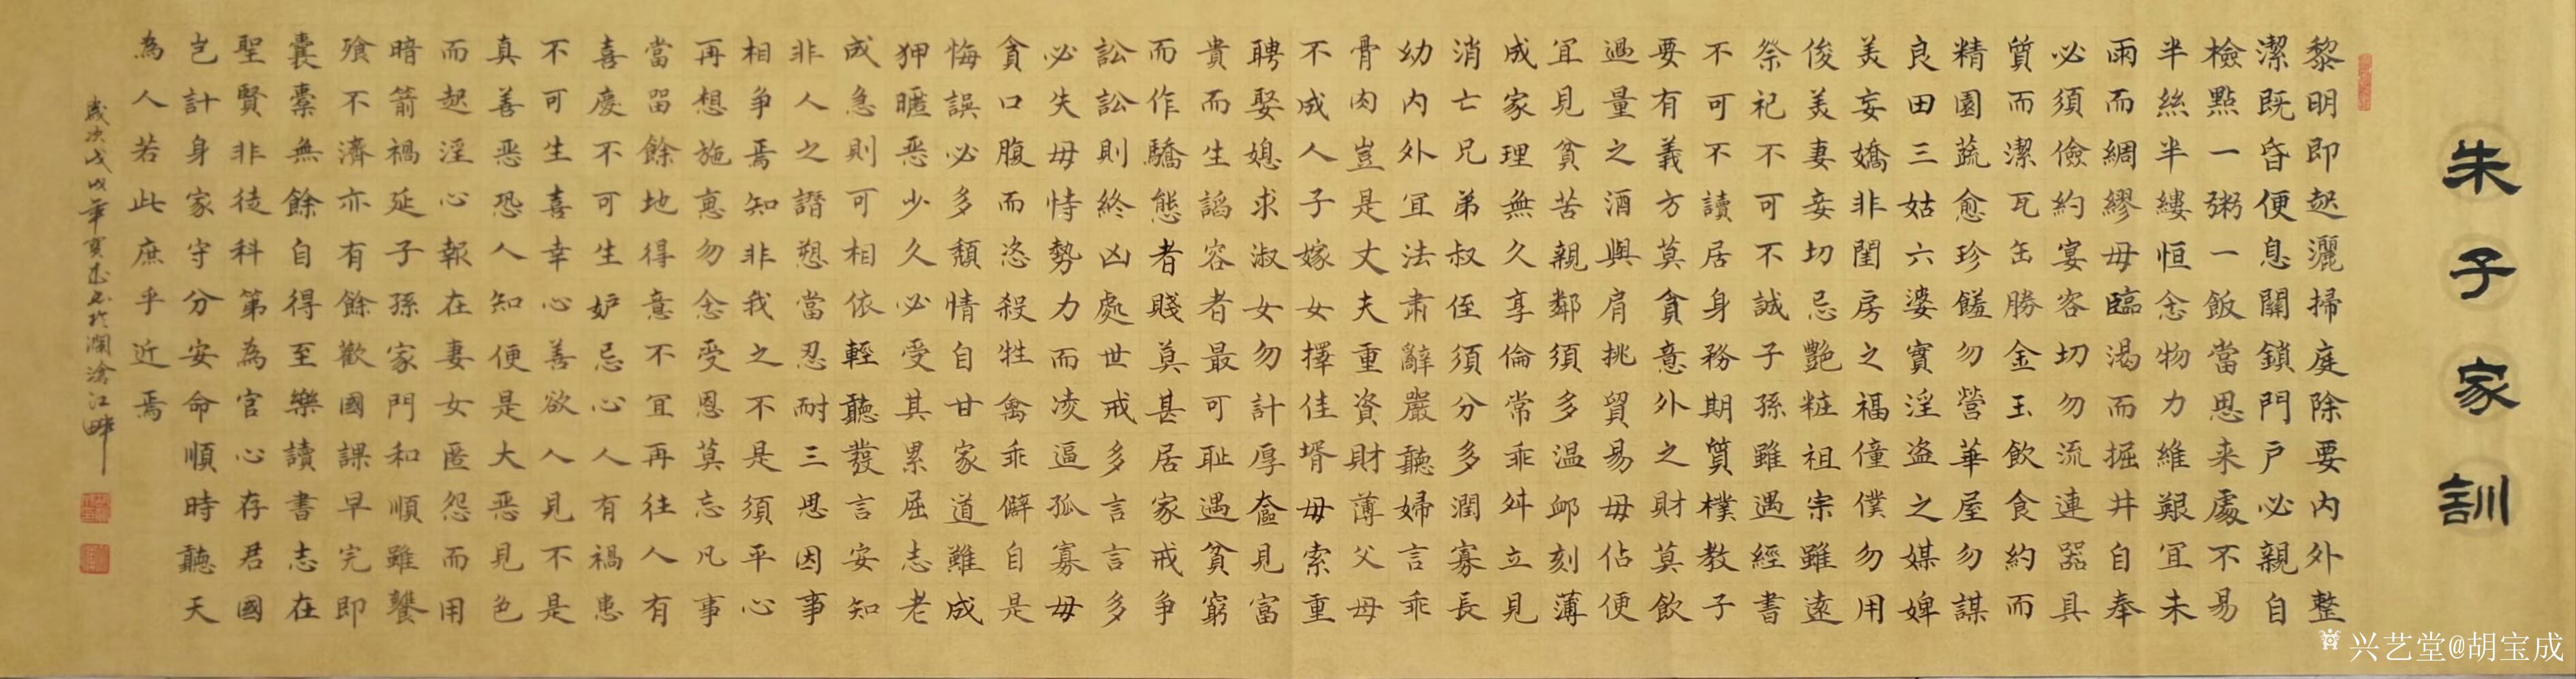 朱子家訓
黎明即起灑掃庭除要內外整
潔既昏便息關鎖門戶必親自
檢點一粥一飯當思来處不易
半絲半縷恒念物力維艱宜未
雨而綢繆毋臨渴而掘井自奉
必須儉約宴客切勿流連器具
質而潔瓦缶勝金玉飲食約而
精園蔬愈珍饈勿營華屋勿謀
良田三姑六婆實淫盜之媒婢
美妾嬌非閨房之福僮僕勿用
俊美妻妾切忌艷粧祖宗雖遠
祭祀不可不誠子孫雖遇經書
不可不讀居身務期質樸教子
要有義方莫貪意外之財莫飲
過量之酒與肩挑貿易毋佔便
宜見貧苦親鄰須多温卹刻薄
成家理無久享倫常乖舛立見
消亡兄弟叔侄須分多潤寡長
幼內外宜法肅辭嚴聽婦言乖
骨肉豈是丈夫重資財薄父母
不成人子嫁女擇佳壻毋索重
聘娶媳求淑女勿計厚奩見富
貴而生諂容者最可耻遇貧窮
而作驕態者賤莫甚居家戒争
訟訟則終凶處世戒多言言多
必失毋恃勢力而凌逼孤寡毋
貪口腹而恣殺牲禽乖僻自是
悔誤必多頹情自甘家道難成
狎暱恶少久必受其累屈志老
成急則可相依輕聽發言安知
非人之譖愬當忍耐三思因事
相争焉知非我之不是須平心
再想施惠勿念受恩莫忘凡事
當留餘地得意不宜再往人有
喜慶不可生妒忌心人有禍患
不可生喜幸心善欲人見不是
真善恶恐人知便是大恶見色
而起淫心報在妻女匿怨而用
暗箭禍延子孫家門和順雖饔
飧不濟亦有餘歡國課早完即
囊橐無餘自得至樂讀書志在
聖賢非徒科第為官心存君國
豈計身家守分安命順時聽天
為人若此庶乎近焉
歲次戊戌年夏於瀾滄江畔
兴艺堂@胡宝成